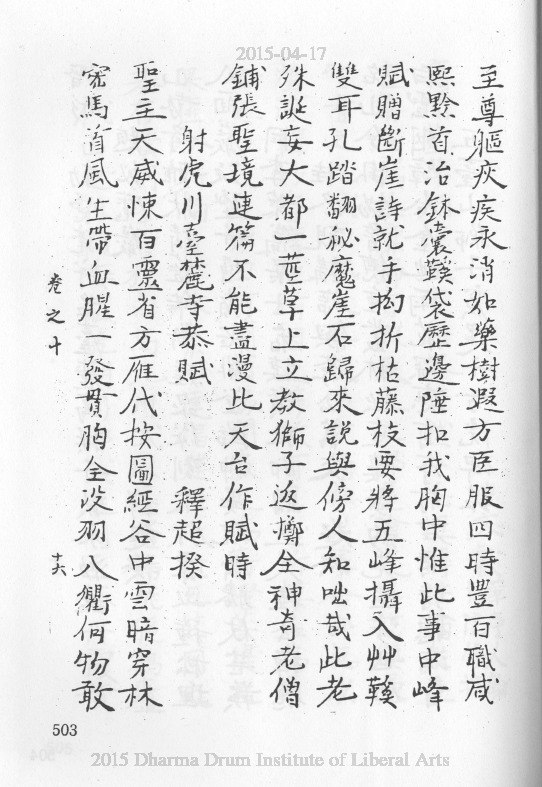 2015-04-17
至尊軀疢疾永消如藥樹遐方臣服四時豐百職咸
熙黔首治鉢囊鞵袋歷邊陲扣我胸中惟此事中峰
賦贈斷崖詩就手拗折枯藤枝要將五峰攝入艸鞵
雙耳孔踏翻秘魔崖石歸來說與傍人知咄哉此老
殊誕妄大都一莖草上立教獅子返擲全神奇老僧
鋪張聖境連篇不能盡漫比天台作賦時
射虎川臺麓寺恭賦 釋超揆
聖主天威悚百靈省方雁代按圖經谷中雲暗穿林
宛馬首風生帶血腥一發貫胸全沒羽八衢何物敢
卷之十
十六
503
2015 Dharma Drum Institute of Liberal Arts